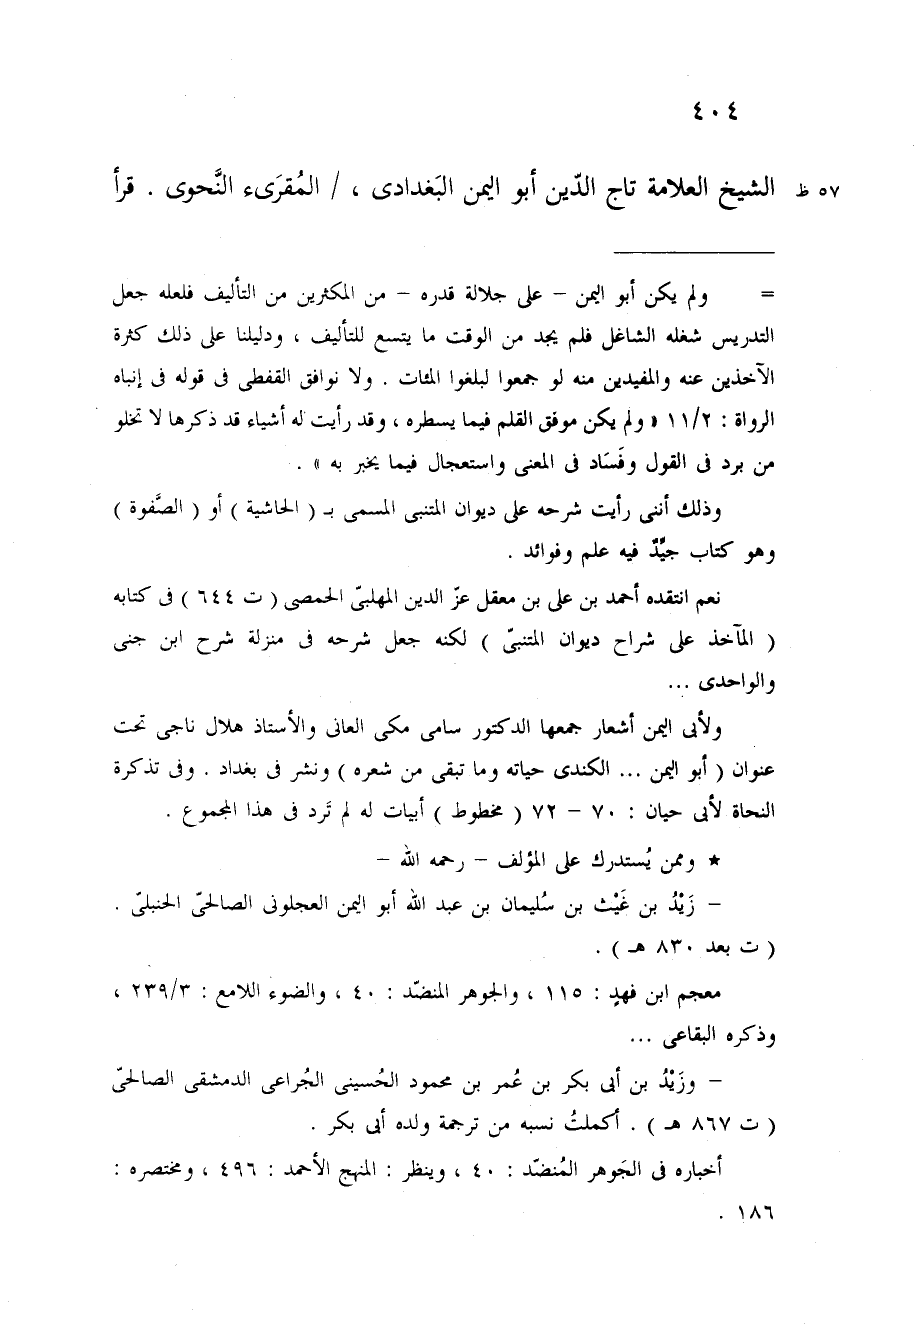 ٤٠٤
٥٧ ظ الشيخ العلامة تاج الدّين أبو اليمن البَغدادى ، / المُقرَىء النَّحوى . قرأ
= ولم يكن أبو اليمن – على جلالة قدره – من المكثرين من التأليف فلعله جعل
التدريس شغله الشاغل فلم يجد من الوقت ما يتسع للتأليف ، ودليلنا على ذلك كثرة
الآخذين عنه والمفيدين منه لو جمعوا لبلغوا المئات . ولا نوافق القفطى فى قوله فى إنباه
الرواة : ١١/٢ « ولم يكن موفق القلم فيما يسطره ، وقد رأيت له أشياء قد ذكرها لا تخلو
من برد فى القول وفَسَاد فى المعنى واستعجال فيما يخبر به » .
وذلك أننى رأيت شرحه على ديوان المتنبى المسمى بـ ( الحاشية ) أو ( الصَّفوة )
وهو كتاب جيِّدٌ فيه علم وفوائد .
نعم انتقده أحمد بن على بن معقل عزّ الدين المهلبىّ الحمصى ( ت ٦٤٤ ) فى كتابه
( المآخذ على شراح ديوان المتنبىّ ) لكنه جعل شرحه فى منزلة شرح ابن جنى
والواحدى ...
ولأبى اليمن أشعار جمعها الدكتور سامى مكى العانى والأستاذ هلال ناجى تحت
عنوان ( أبو اليمن ... الكندى حياته وما تبقى من شعره ) ونشر فى بغداد . وفى تذكرة
النحاة لأبى حيان : ٧٠ – ٧٢ ( مخطوط ) أبيات له لم تَرد فى هذا المجموع .
★ وممن يُستدرك على المؤلف – رحمه الله –
– زَيْدُ بن غَيْث بن سُليمان بن عبد الله أبو اليمن العجلونى الصالحىّ الحنبلىّ .
( ت بعد ٨٣٠ هـ ) .
معجم ابن فهدٍ : ١١٥ ، والجوهر المنضّد : ٤٠ ، والضوء اللامع : ٢٣٩/٣ ،
وذكره البقاعى ...
– وزَيْدُ بن أبى بكر بن عُمر بن محمود الحُسينى الجُراعى الدمشقى الصالحىّ
( ت ٨٦٧ هـ ) . أكملتُ نسبه من ترجمة ولده أبى بكر .
أخباره فى الجَوهر المُنضّد : ٤٠ ، وينظر : المنهج الأحمد : ٤٩٦ ، ومختصره :
١٨٦ .